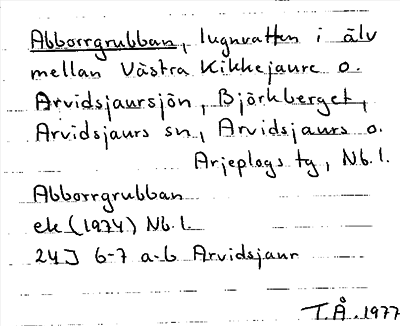 Abborrgrubban, lugnvatten i älv
mellan Västra Kikkejaure o.
Arvidsjaursjön, Björkberget,
Arvidsjaurs sn, Arvidsjaurs o.
Arjeplogs tg, Nb. l.
Abborrgrubban
ek (1974) Nb. l.
24J 6-7 a-b Arvidsjaur
T.Å. 1977